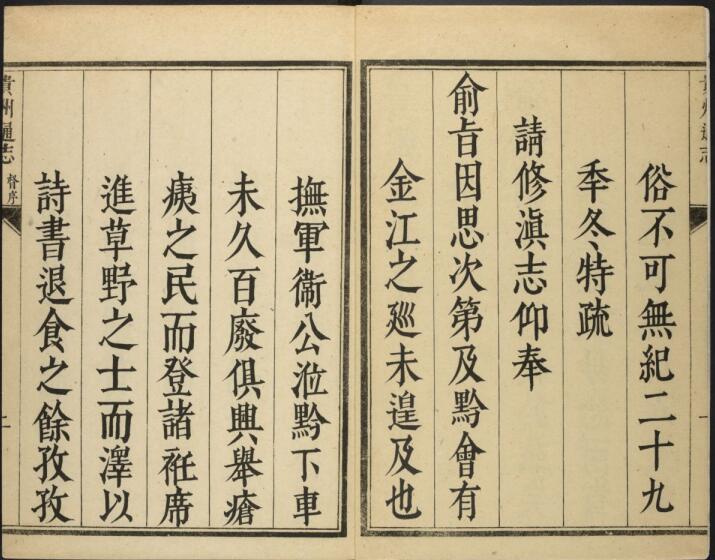 俗不可無紀二十九
秊冬特疏
請修滇志仰奉
俞旨因思次第及黔會有
金江之廵未遑及也
撫軍衞公涖黔下車
未久百廢俱興舉瘡
痍之民而登諸袵席
進草野之士而澤以
詩書退食之餘孜孜
貴州通志 督序
二